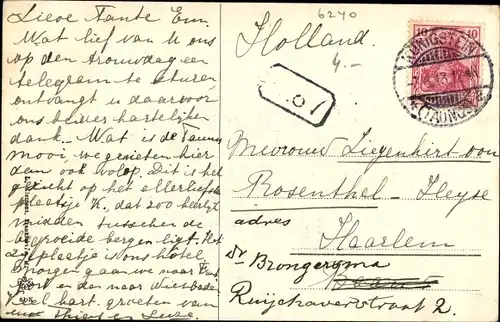 Lieve Tante Em.
Wat lief van U ons
op den trouwdag een
telegram te sturen
ontvangt u daarvoor
ons beider hartelijken
dank. Wat is de Taunus
mooi, we genieten hier
dan ook volop. Dit is het
gezicht op het allerliefste
plaatsje K. dat zoo heerlijk
midden tusschen de
begroeide bergen ligt. Het
is ons hotel
Morgen gaan we naar
en dan naar Wiesbaden
hart. groeten van
en
6240
Holland.
4.-
10 10
KÖNIGSTEIN
(TAUNUS)
Mevrouw Ziegenhirt von
Rosenthal-Heyse
adres
Haarlem
Dr Brongersma
Ruijchaverstraat 2.